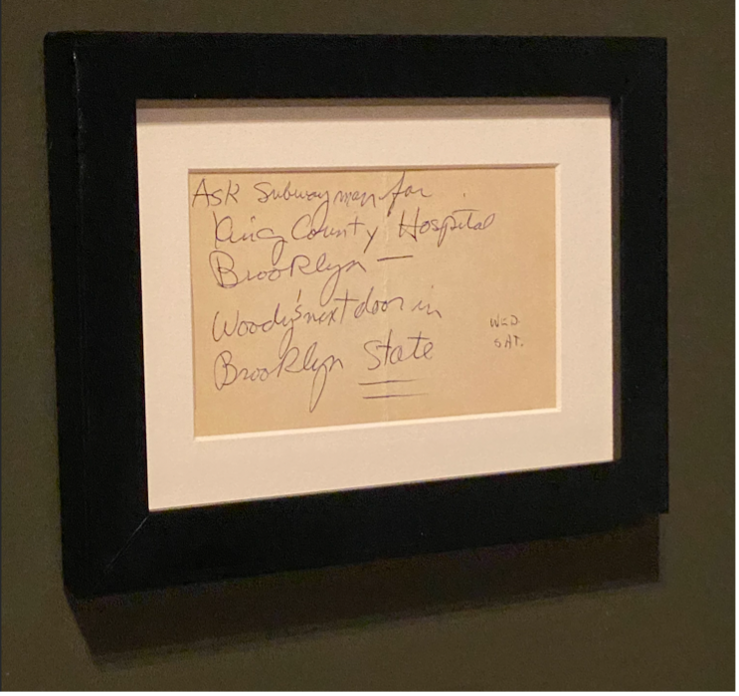 Ask Subway man for
King County Hospital
Brooklyn —
Woody's next door in
Brooklyn State
WED.
SAT.